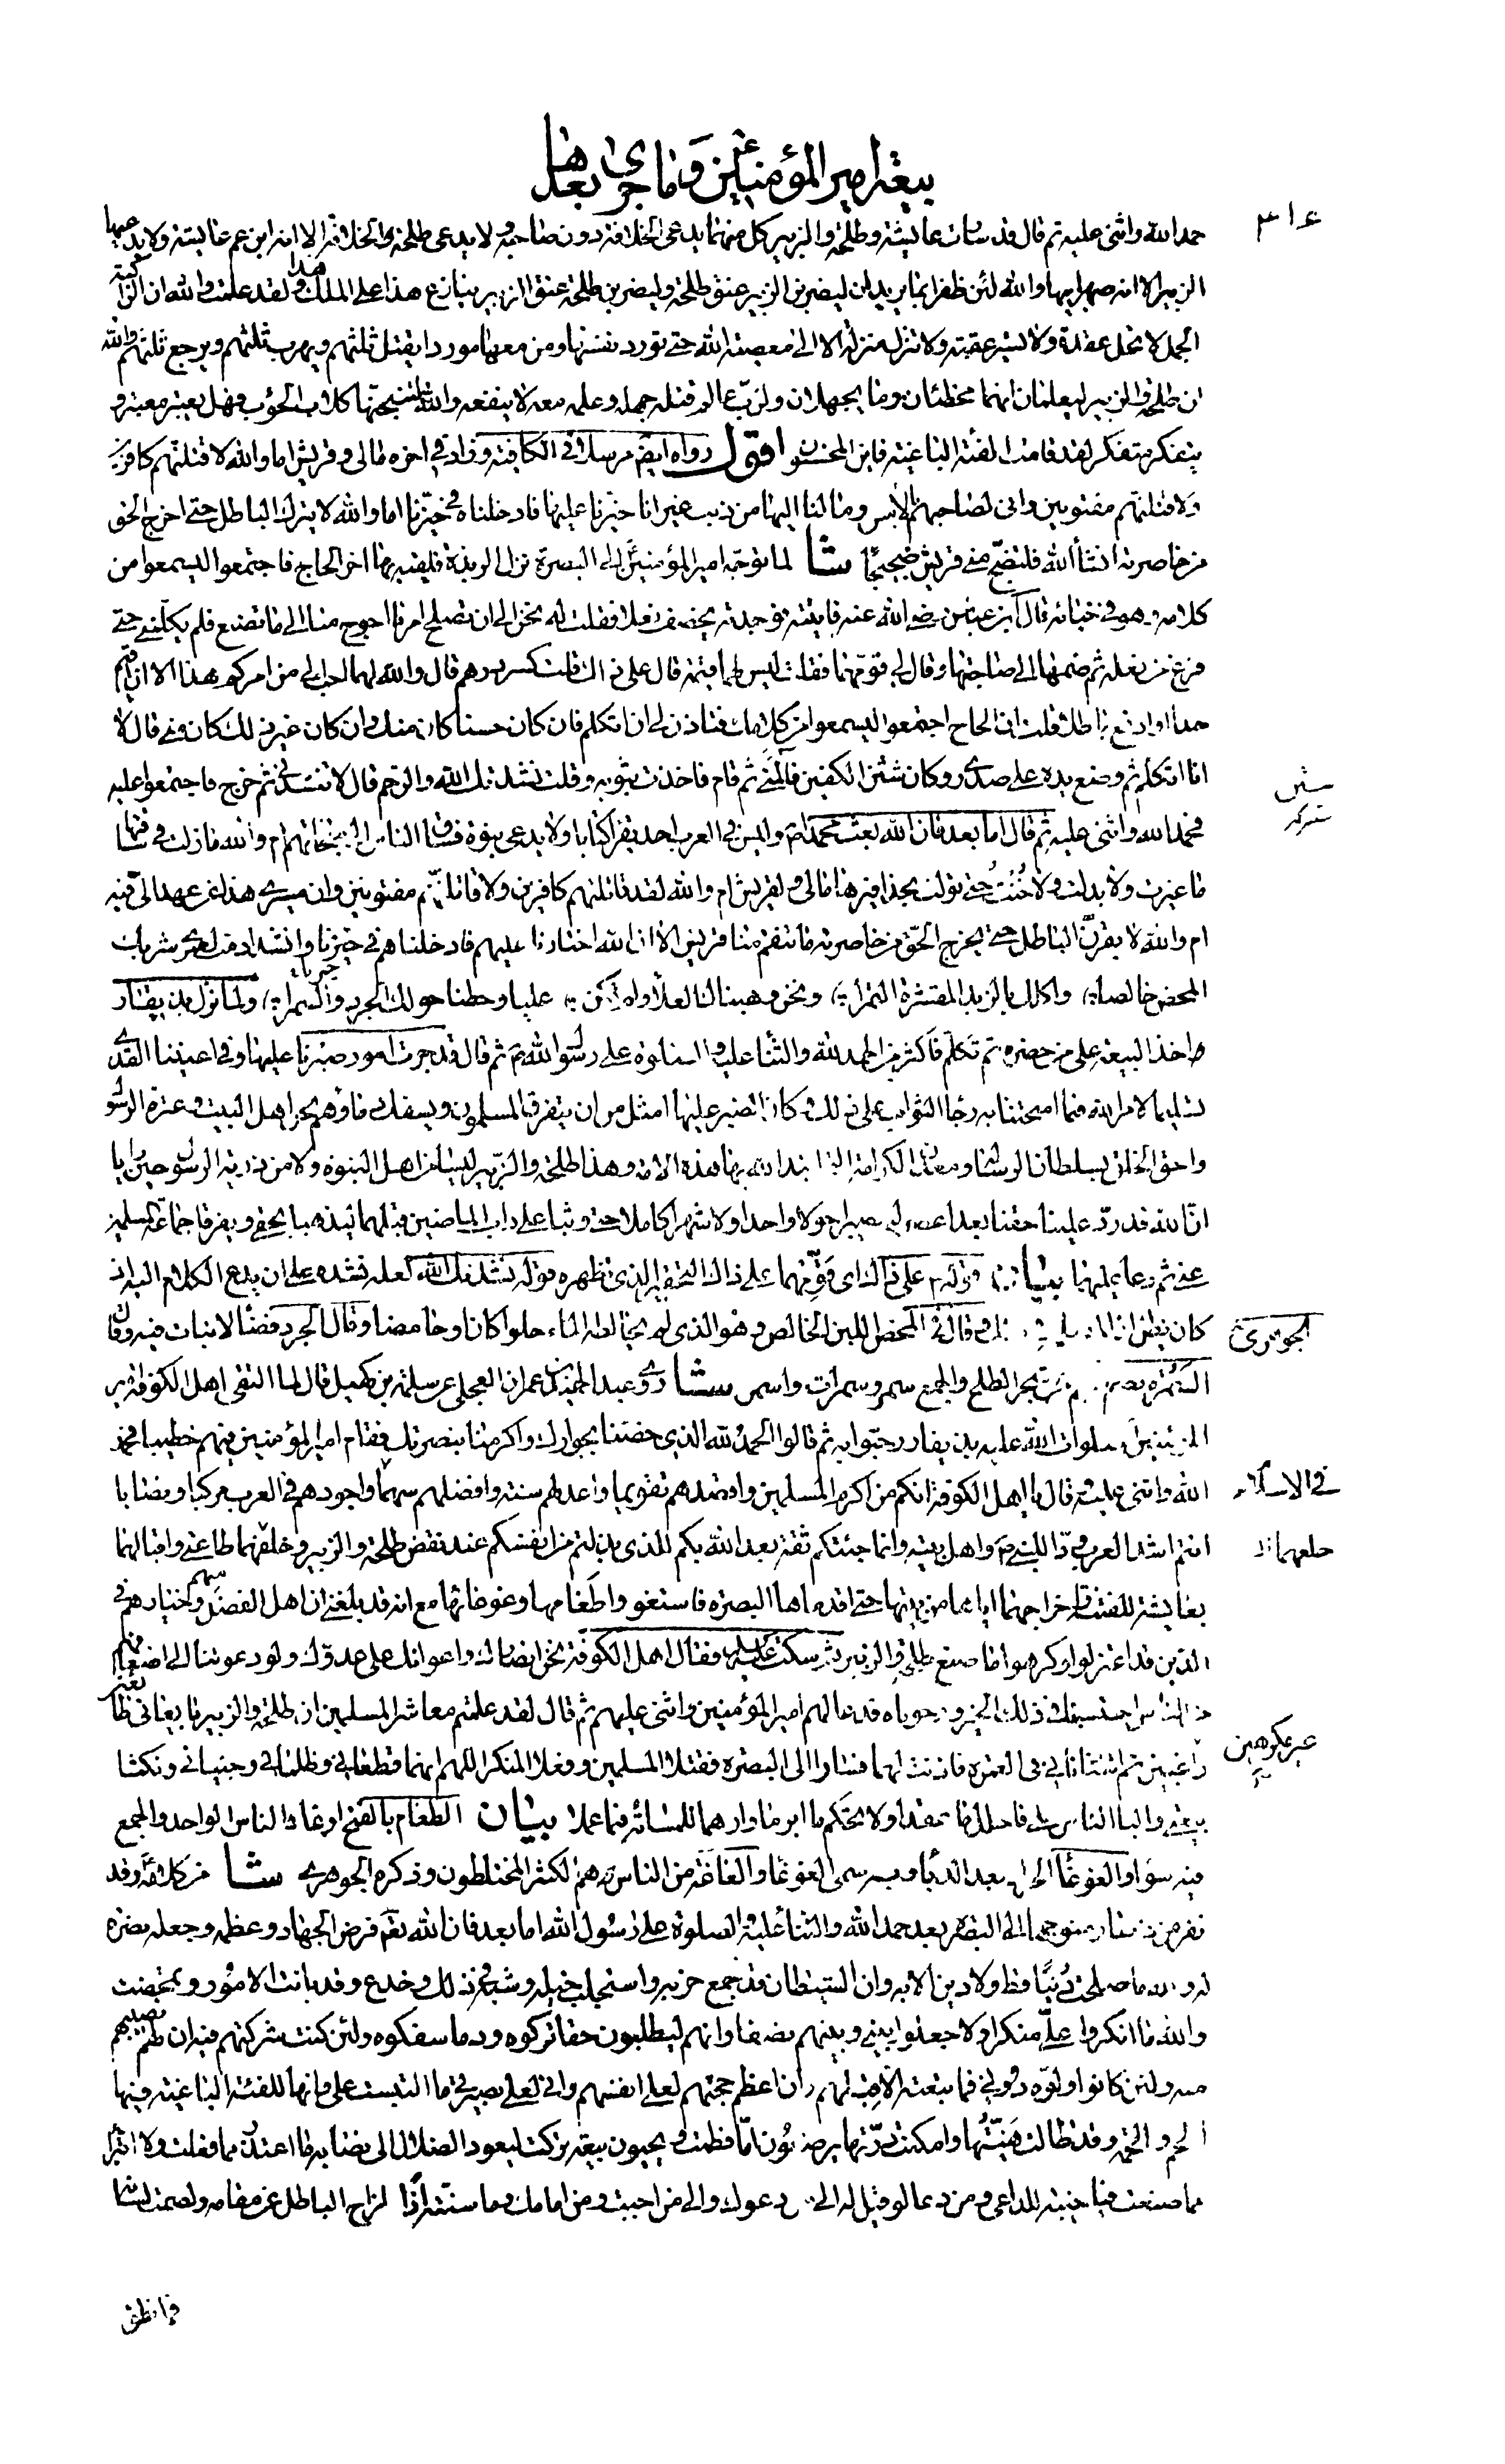 بيعة امير المؤمنين ع وما جرى بعدها
حمد الله واثنى عليه ثم قال قد سارت عايشة وطلحة والزبير كل منهما يدعى الخلافة دون صاحبه ولا يدعى طلحة الخلافة الا انه ابن عم عايشة ولا يدعيها
الزبير الا انه صهر ابيها والله لئن ظفرا بما يريدان ليضربن الزبير عنق طلحة وليضربن طلحة عنق الزبير ينازع هذا على الملك هذا ولقد علمت والله ان الراكبة
الجمل لا تحل عقدة ولا تسير عقبة ولا تنزل منزلة الا الى معصية الله حتى تورد نفسها ومن معها موردا يقتل ثلثهم ويهرب ثلثهم ويرجع ثلثهم والله
ان طلحة والزبير ليعلمان انهما مخطئان وما يجهلان ولرب عالم قتله جهله وعلمه معه لا ينفعه والله لتنبحنها كلاب الحوئب فهل يعتبر معتبر و
يتفكر متفكر لقد قامت الفئة الباغية فاين المحسنون اقول رواه ايضا مرسلا في الكافية وزاد في اخره مالى وقريش اما والله لاقتلنهم كافرين
ولاقتلنهم مفتونين وانى لصاحبهم بالامس وما لنا اليها من ذنب غير انا خيرنا عليها فادخلناهم في خيرنا اما والله لا يترك الباطل حتى اخرج الحق
من خاصرته انشأ الله فلتضج منى قريش ضجيجا شا لما توجه امير المؤمنين ع الى البصرة نزل الربذة فلقيه بها اخر الحاج فاجتمعوا ليسمعوا من
كلامه وهو في خبائه قال ابن عباس رضى الله عنه فاتيته فوجدته يخصف نعلا فقلت له نحن الى ان تصلح امرنا احوج منا الى ما تصنع فلم يكلمنى حتى
فرغ من نعله ثم ضمها الى صاحبتها وقال لي قومهما فقلت ليس لهما قيمة قال على ذاك قلت كسر درهم قال والله لهما احب الى من امركم هذا الا ان اقيم
حدا او ادفع باطلا قلت ان الحاج اجتمعوا ليسمعوا من كلامك فتاذن لي ان اتكلم فان كان حسنا كان منك وان كان غير ذلك كان منى قال لا
انا اتكلم ثم وضع يده على صدرى وكان شثن الكفين فآلمنى ثم قام فاخذت بثوبه وقلت نشدتك الله والرحم قال لا تنشدنى ثم خرج فاجتمعوا عليه
فحمد الله واثنى عليه ثم قال اما بعد فان الله بعث محمدا ص وليس في العرب احد يقرأ كتابا ولا يدعى نبوة فساق الناس الى منجاتهم ام والله ما زلت في ساقتها
ما غيرت ولا بدلت ولا خنت حتى تولت بحذافيرها مالى ولقريش ام والله لقد قاتلتهم كافرين ولاقاتلنهم مفتونين وان مسيرى هذا عن عهد الى فيه
ام والله لابقرن الباطل حتى يخرج الحق من خاصرته ما تنقم منا قريش الا ان الله اختارنا عليهم فادخلناهم في خيرنا وانشد ادمت لعمرى شربك
المحض خالصا واكلك بالزبد المقشرة التمرا ونحن وهبناك العلا ولم تكن عليا وحطنا حولك الجرد والسمرا ولما نزل بذي قار
اخذ البيعة على من حضره ثم تكلم فاكثر من الحمد لله والثنا عليه والصلوة على رسول الله ص ثم قال قد جرت امور صبرنا عليها وفي اعيننا القذى
تسليما لامر الله فيما امتحننا به رجا الثواب على ذلك وكان الصبر عليها امثل من ان يتفرق المسلمون ويسفك دماؤهم نحن اهل البيت وعترة الرسول
واحق الخلق بسلطان الرسالة ومعدن الكرامة التى ابتدا الله بها هذه الامة وهذا طلحة والزبير ليسا من اهل النبوة ولا من ذرية الرسول حين رايا
ان الله قد رد علينا حقنا بعد اعصر لم يصبرا حولا واحدا ولا شهرا كاملا حتى وثبا على داب الماضين قبلهما ليذهبا بحقى ويفرقا جماعة المسلمين
عنى ثم دعا عليهما بيان قوله ع على ذاك اى قومهما على ذاك التحقير الذى تظهره قوله نشدتك الله لعله نشده على ان يدع الكلام اليه لانه
الجوهرى
المحض اللبن الخالص وهو الذى لم يخالطه الماء حلوا كان او حامضا وقال الجرد فضأ لا نبات فيه وقال
شا روى عبد الحميد بن عمران العجلى عن سلمة بن كهيل قال لما التقى اهل الكوفة امير
المؤمنين صلوات الله عليه بذي قار رحبوا به ثم قالوا الحمد لله الذى خصنا بجوارك واكرمنا بنصرتك فقام امير المؤمنين فيهم خطيبا فحمد
الله واثنى عليه ثم قال يا اهل الكوفة انكم من اكرم المسلمين واقصدهم تقويما واعدلهم سنة وافضلهم سهما في الاسلام واجودهم في العرب مركبا ونصابا
انتم اشد العرب ودا للنبي ص واهل بيته وانما جئتكم ثقة بعد الله بكم للذى بذلتم من انفسكم عند نقض طلحة والزبير وخلعهما طاعتى واقبالهما
بعايشة للفتنة واخراجهما اياها من بيتها حتى اقدماها البصره فاستغووا طغامها وغوغائها مع انه قد بلغنى ان اهل الفضل منهم وخيارهم في
الدين قد اعتزلوا وكرهوا ما صنع طلحة والزبير ثم سكت ع فقال اهل الكوفة نحن انصارك واعوانك على عدوك ولو دعوتنا الى اضعافهم
من الناس احتسبنا في ذلك الخير ورجوناه فدعا لهم امير المؤمنين واثنى عليهم ثم قال لقد علمتم معاشر المسلمين ان طلحة والزبير بايعانى طائعين
غير مكرهين
راغبين ثم استاذنانى في العمرة فاذنت لهما فسارا الى البصره فقتلا المسلمين وفعلا المنكر اللهم انهما قطعانى وظلمانى وجنيانى ونكثا
بيعتى والبا الناس على فاحلل ما عقدا ولا تحكم ما ابرما وارهما المسائة فيما عملا بيان الطغام بالفتح اوغاد الناس الواحد والجمع
فيه سواء والغوغأ الجراد بعد الدبا وبه سمى الغوغا والغاغة من الناس وهم الكثير المختلطون وذكره الجوهرى شا من كلامه ع وقد
نفر من ذى قار متوجها الى البصره بعد حمد الله والثنأ عليه والصلوة على رسول الله اما بعد فان الله تعم فرض الجهاد وعظمه وجعله نصره
له والله ما صلحت دنيا قط ولا دين الا به وان الشيطان قد جمع حزبه واستجلب خيله وشبه في ذلك وخدع وقد بانت الامور وتمخضت
والله ما انكروا على منكرا ولا جعلوا بينى وبينهم نصفا وانهم ليطلبون حقا تركوه ودما سفكوه ولئن كنت شركتهم فيه ان لهم لنصيبهم
منه ولئن كانوا ولوه دونى فما تبعته الا قبلهم وان اعظم حجتهم لعلى انفسهم وانى لعلى بصيرتى ما التبست على وانها للفئة الباغية فيها
الحم والحمة وقد طالت هينتها وامكنت درتها يرضعون اما فطمت ويحيون بيعة تركت ليعود الضلال الى نصابه ما اعتذر مما فعلت ولا اتبرا
مما صنعت فيا خيبة للداعى ومن دعا لو قيل له الى من دعوتك والى من اجبت ومن امامك وما سنته اذا لزاح الباطل عن مقامه ولصمت لسانه
فما نطق